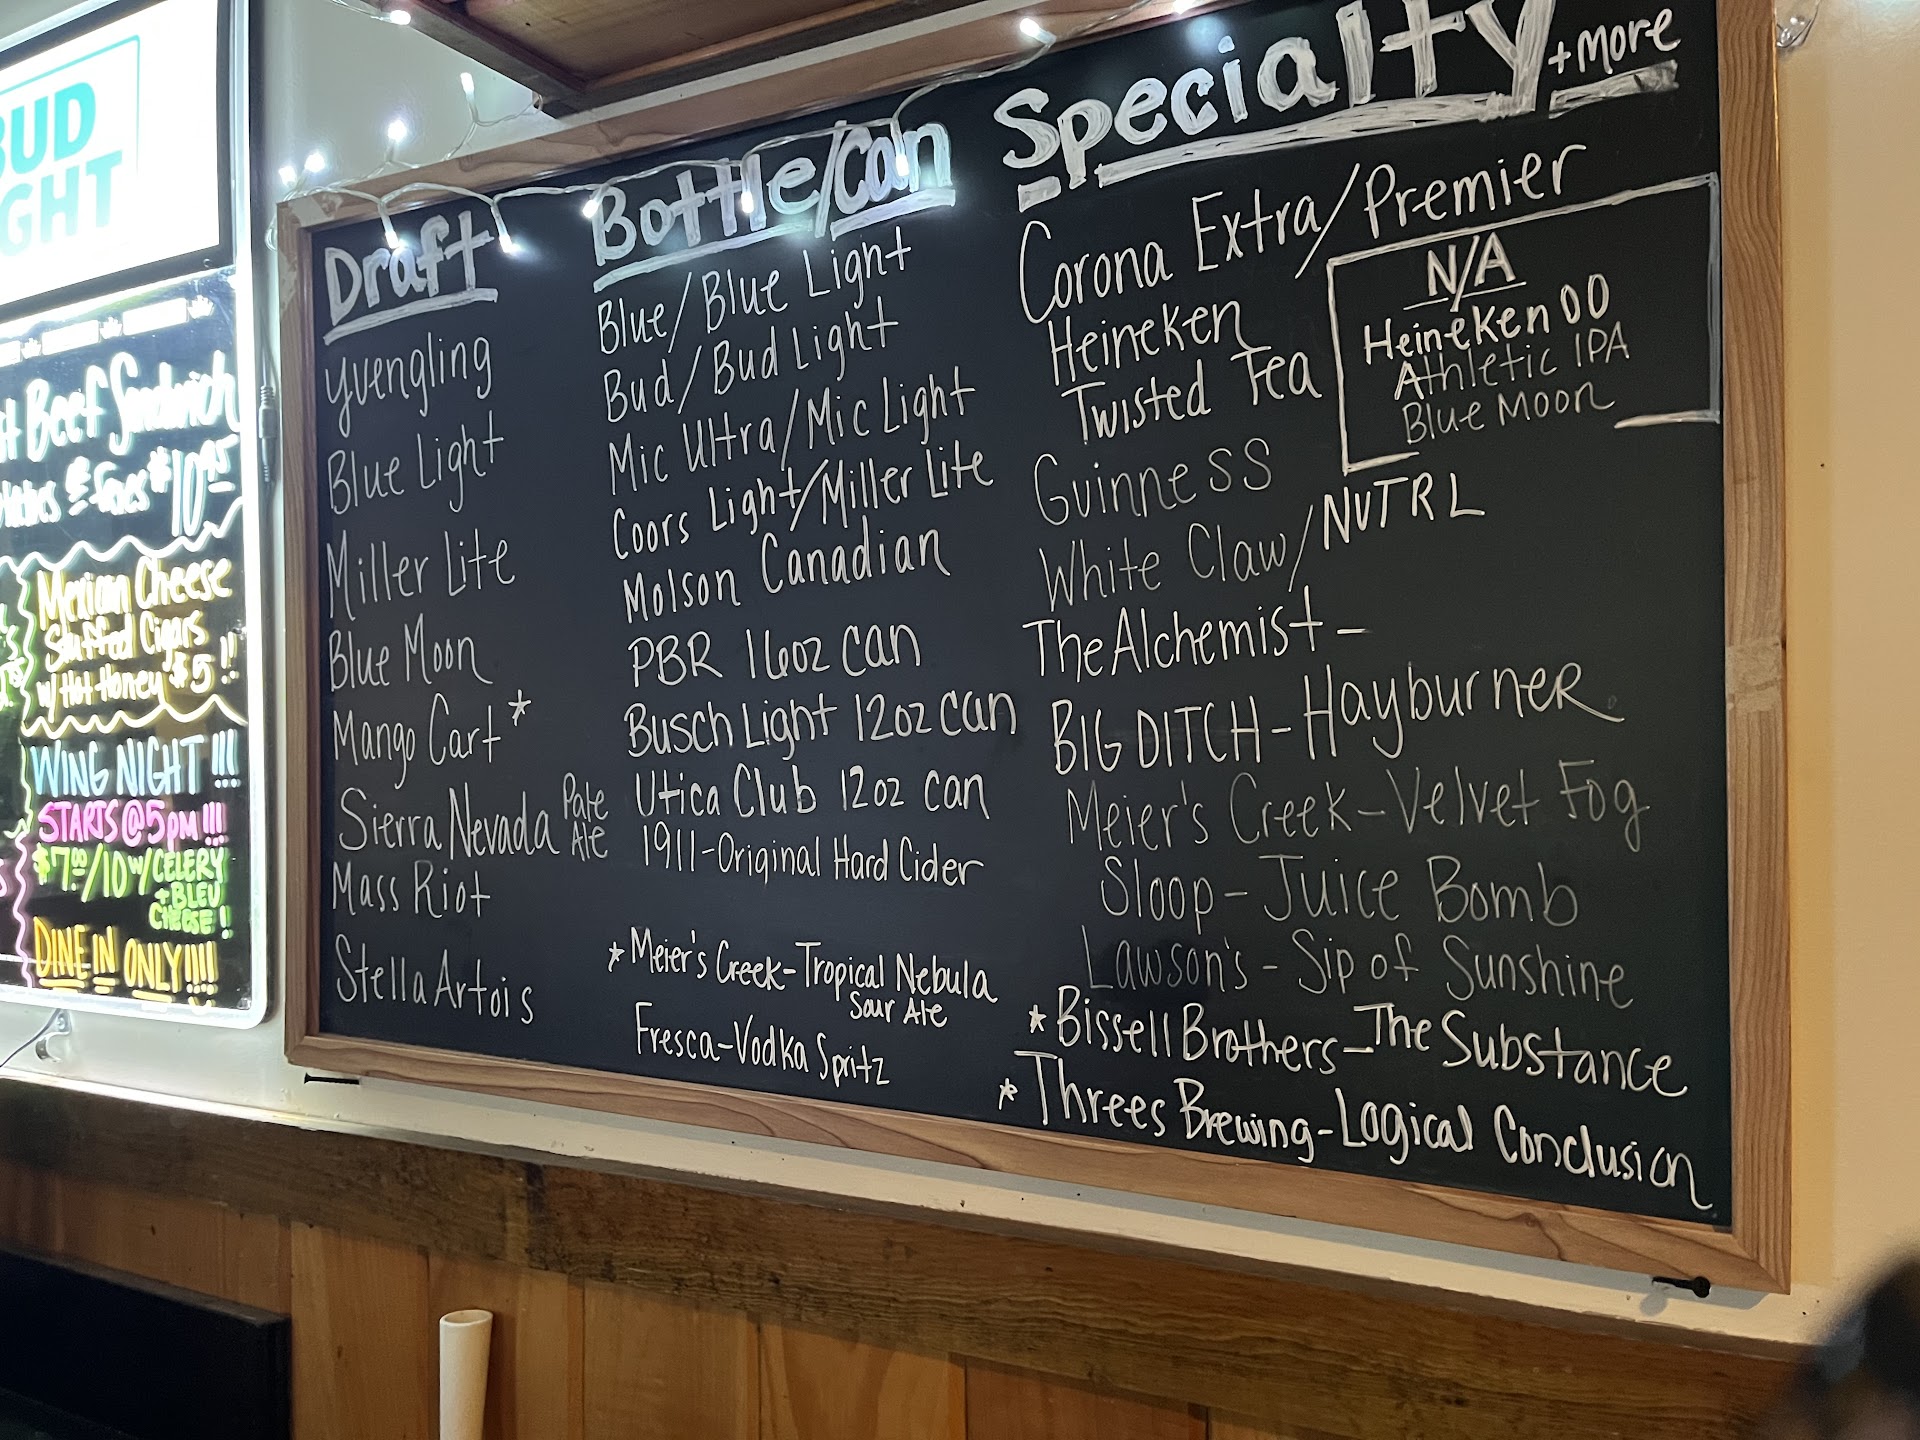 BUD
GHT
Beef Sandwich
$10.95
Mexican Cheese
Stuffed Cigars
w/ Hot Honey $5!!
WING NIGHT!!!
STARTS @ 5PM!!!
$7.00/10 w/CELERY
+ BLEU
CHEESE!
DINE IN ONLY!!!!
Draft
Yuengling
Blue Light
Miller Lite
Blue Moon
Mango Cart*
Sierra Nevada Pale
Ale
Mass Riot
Stella Artois
Bottle/Can
Blue/Blue Light
Bud/Bud Light
Mic Ultra/Mic Light
Coors Light/Miller Lite
Molson Canadian
PBR 16oz can
Busch Light 12oz can
Utica Club 12oz can
1911-Original Hard Cider
*Meier's Creek-Tropical Nebula
Sour Ale
Fresca-Vodka Spritz
Specialty +more
Corona Extra/Premier
Heineken
Twisted Tea
Guinness
White Claw/NUTRL
The Alchemist-
BIG DITCH-HayburnER
Meier's Creek-Velvet Fog
Sloop-Juice Bomb
Lawson's-Sip of Sunshine
*Bissell Brothers-The Substance
*Threes Brewing-Logical Conclusion
N/A
Heineken 00
Athletic IPA
Blue Moon